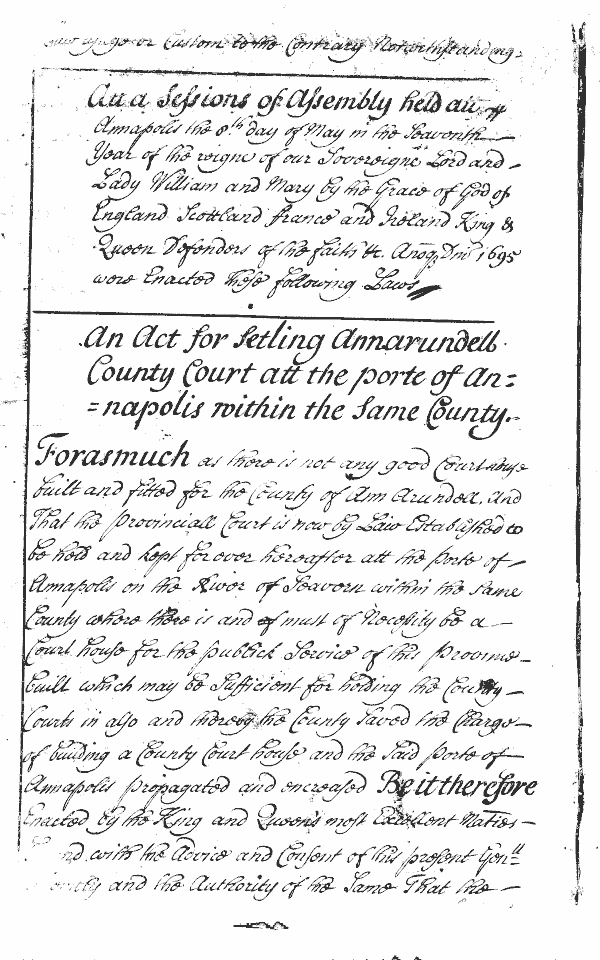 usage or Custom to the Contrary Notwithstanding.
Att a Sessions of Assembly held att
Annapolis the 8th day of May in the Seaventh
Year of the reigne of our Sovereigne Lord and
Lady William and Mary by the Grace of God of
England Scottland france and Ireland King &
Queen Defenders of the faith &c. Annoq Dni 1695
were Enacted these following Laws
An Act for Setling Annarundell
County Court att the porte of An=
=napolis within the Same County.
Forasmuch as there is not any good Court house
built and fitted for the County of Ann Arundell, and
That the Provinciall Court is now by Law Established to
be held and kept forever hereafter att the porte of
Annapolis on the River of Seavern within the Same
County where there is and of must of Necessity be a
Court house for the publick Service of this Province
built which may be Sufficient for holding the County
Courts in also and thereby the County Saved the Charge
of building a County Court house and the Said porte of
Annapolis propagated and encreased Be it therefore
Enacted by the King and Queens most Excellent Maties
and with the Advice and Consent of this present Genll
and the Authority of the Same That the